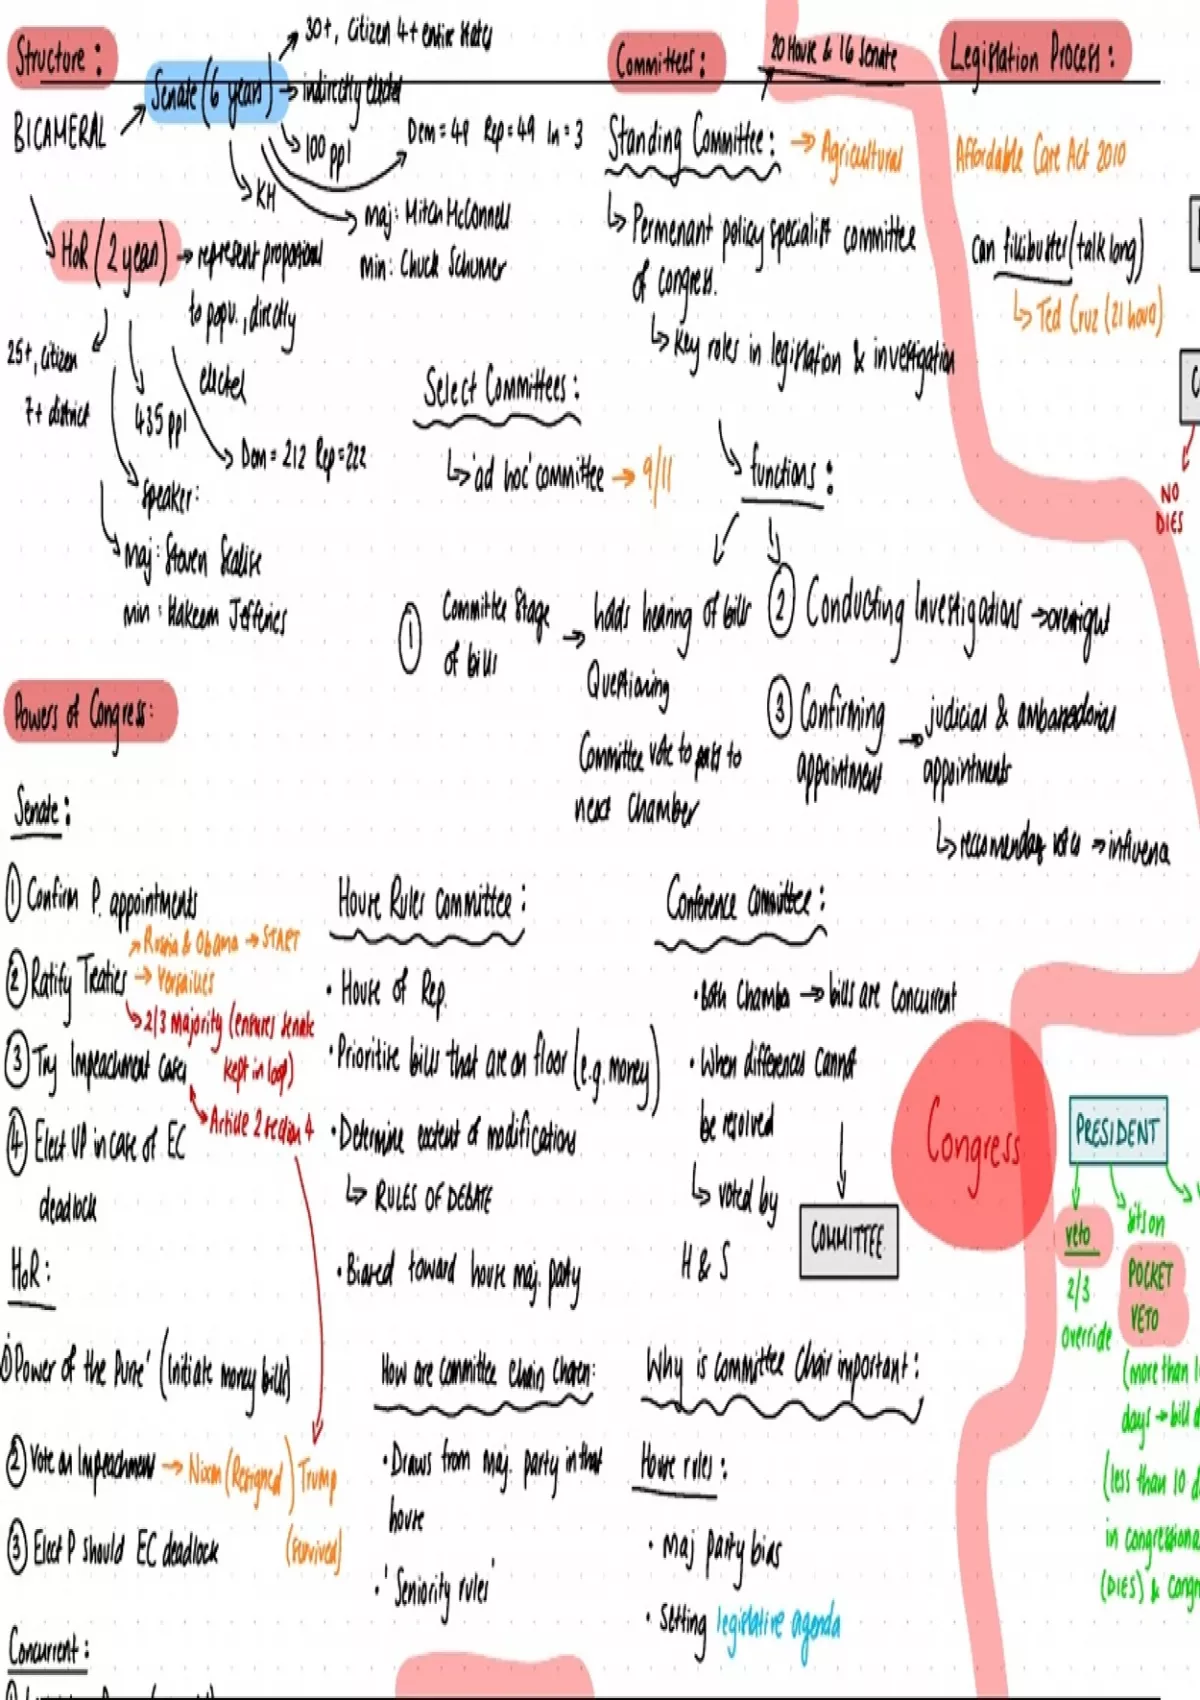 Structure :
BICAMERAL
Senate (6 years)
30+, Citizen 4+ entire states
indirectly elected
100 ppl
Dem = 48 Rep = 49 In = 3
KH
maj: Mitch McConnell
min: Chuck Schumer
HoR (2 year)
represent proportional
to popu., directly
elected
25+, citizen
7+ district
435 ppl
Dem = 212 Rep = 222
Speaker:
maj: Steven Scalise
min: Hakeem Jefferies
Powers of Congress:
Senate:
① Confirm P. appointments
② Ratify Treaties
Russia & Obama → START
→ Versailles
2/3 majority (ensures senate
kept in loop)
③ Try Impeachment cases
Article 2 section 4
④ Elect VP in case of EC
deadlock
HoR:
① Power of the Purse' (Initiate money bills)
② Vote on Impeachment → Nixon (Resigned) Trump
(survived)
③ Elect P should EC deadlock
Concurrent:
Committees:
20 House & 16 Senate
Standing Committee: → Agricultural
Permenant policy specialist committee
of congress.
Key roles in legislation & investigation
Select Committees:
'ad hoc' committee → 9/11
functions:
① Committee Stage
of bills
holds hearing of bills
Questioning
Committee vote to pass to
next Chamber
② Conducting Investigations → oversight
③ Confirming
appointment
judicial & ambassadorial
appointments
reccomendary votes → influence
House Rules Committee:
• House of Rep.
• Prioritise bills that are on floor (e.g. money)
• Determine extent of modifications
RULES OF DEBATE
• Biased toward house maj. party
Conference committee:
• Both Chamber → bills are concurrent
• When differences cannot
be resolved
voted by
H & S
COMMITTEE
How are committee chairs chosen:
• Draws from maj. party in that
house
• 'Seniority rules'
Why is committee Chair important:
House rules:
• Maj party bias
• Setting legislative agenda
Legislation Process:
Affordable Care Act 2010
Can filibuster (talk long)
Ted Cruz (21 hours)
NO
DIES
Congress
PRESIDENT
veto
2/3
override
sits on
POCKET
VETO
(more than
days → bill
(less than 10
in congressiona
(DIES) &